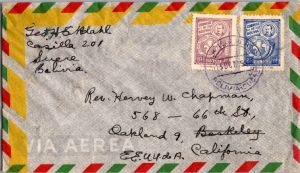 Casilla 201
Sucre
Bolivia
Rev. Harvey W. Chapman,
568 – 66th St,
Oakland 9, Berkeley
California
E E U U d A
VIA AEREA